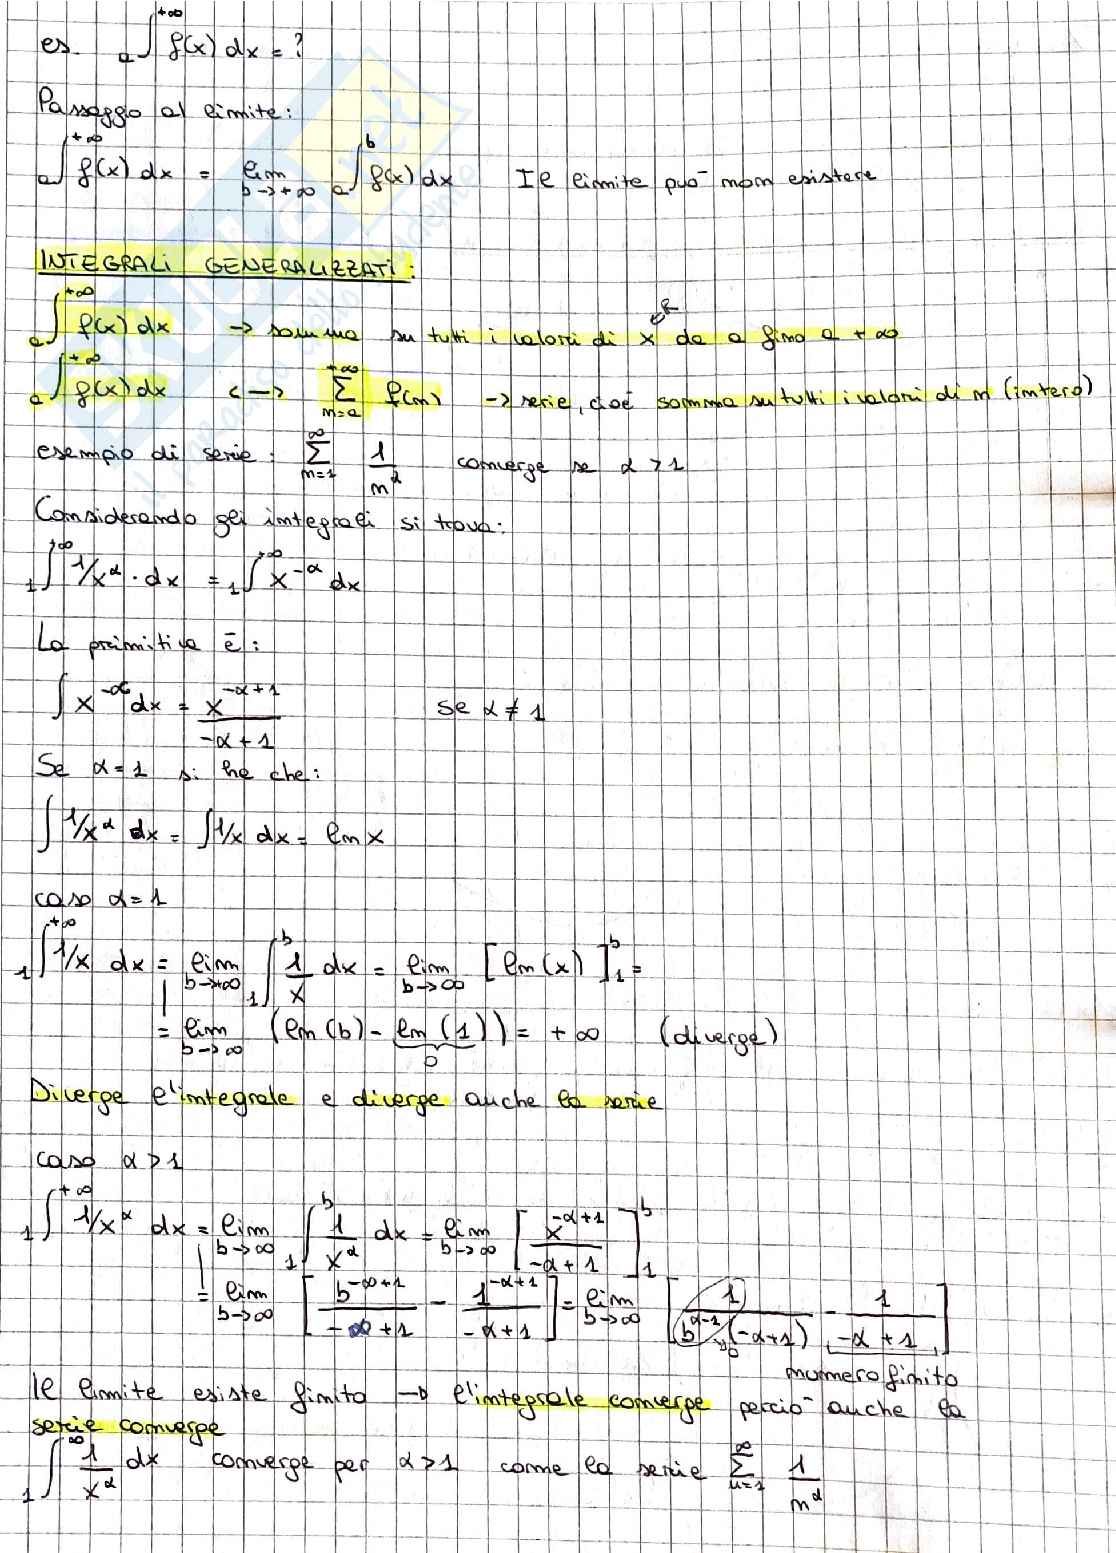 es. ₐ∫^{+∞} f(x) dx = ?
Passaggio al limite:
ₐ∫^{+∞} f(x) dx = lim_{b→+∞} ₐ∫^{b} f(x) dx Il limite può non esistere
INTEGRALI GENERALIZZATI:
ₐ∫^{+∞} f(x) dx → somma su tutti i valori di x ∈ R da a fino a +∞
ₐ∫^{+∞} f(x) dx <—> Σ_{n=a}^{+∞} f(n) → serie, cioè somma su tutti i valori di n (intero)
esempio di serie: Σ_{n=1}^{∞} 1/n^α converge se α > 1
Considerando gli integrali si trova:
₁∫^{+∞} 1/x^α · dx = ₁∫^{+∞} x^{-α} dx
La primitiva è:
∫ x^{-α} dx = x^{-α+1}/(-α+1) se α ≠ 1
Se α=1 si ha che:
∫ 1/x^α dx = ∫ 1/x dx = ln x
caso α=1
₁∫^{+∞} 1/x dx = lim_{b→+∞} ₁∫^{b} 1/x dx = lim_{b→∞} [ln(x)]₁^{b} =
= lim_{b→∞} (ln(b) - ln(1)) = +∞ (diverge)
0
Diverge l'integrale e diverge anche la serie
caso α>1
₁∫^{+∞} 1/x^α dx = lim_{b→∞} ₁∫^{b} 1/x^α dx = lim_{b→∞} [x^{-α+1}/(-α+1)]₁^{b}
= lim_{b→∞} [b^{-α+1}/(-α+1) - 1^{-α+1}/(-α+1)] = lim_{b→∞} [1/(b^{α-1}(-α+1)) - 1/(-α+1)]
→0
numero finito
Il limite esiste finito → l'integrale converge perciò anche la
serie converge
₁∫^{∞} 1/x^α dx converge per α>1 come la serie Σ_{n=1}^{∞} 1/n^α